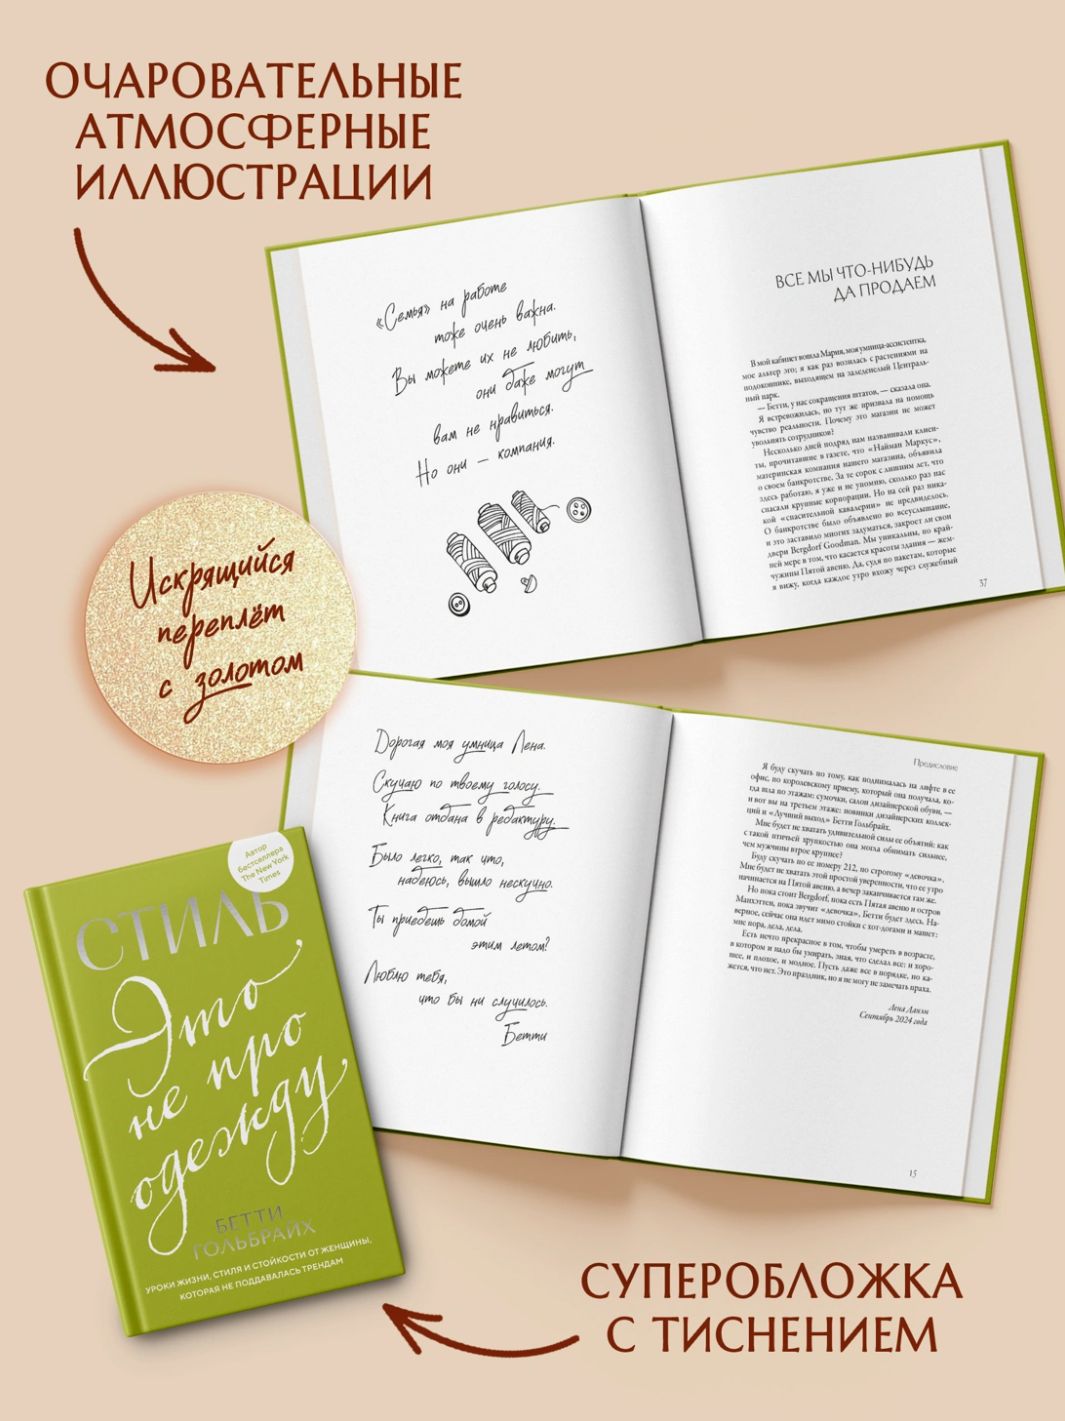 ОЧАРОВАТЕЛЬНЫЕ
АТМОСФЕРНЫЕ
ИЛЛЮСТРАЦИИ
«Семья» на работе
тоже очень важна.
Вы можете их не любить,
они даже могут
вам не нравиться.
Но они — компания.
ВСЕ МЫ ЧТО-НИБУДЬ
ДА ПРОДАЕМ
В мой кабинет вошла Мария, моя умница-ассистентка,
мое альтер эго; я как раз возилась с растениями на
подоконнике, выходящем на заледенелый Централь-
ный парк.
— Бетти, у нас сокращения штатов, — сказала она.
Я встревожилась, но тут же призвала на помощь
чувство реальности. Почему это магазин не может
увольнять сотрудников?
Несколько дней подряд нам названивали клиен-
ты, прочитавшие в газете, что «Найман Маркус»,
материнская компания нашего магазина, объявила
о своем банкротстве. За те сорок с лишним лет, что
здесь работаю, я уже и не упомню, сколько раз нас
спасали крупные корпорации. Но на сей раз ника-
кой «спасительной кавалерии» не предвиделось.
О банкротстве было объявлено во всеуслышание,
и это заставило многих задуматься, закроет ли свои
двери Bergdorf Goodman. Мы уникальны, по край-
ней мере в том, что касается красоты здания — жем-
чужины Пятой авеню. Да, судя по пакетам, которые
я вижу, когда каждое утро вхожу через служебный
37
Искрящийся
переплёт
с золотом
Дорогая моя умница Лена.
Скучаю по твоему голосу.
Книга отдана в редактуру.
Было легко, так что,
надеюсь, вышло нескучно.
Ты приедешь домой
этим летом?
Люблю тебя,
что бы ни случилось.
Бетти
Предисловие
Я буду скучать по тому, как поднималась на лифте в ее
офис, по королевскому приему, который она получала, ко-
гда шла по этажам: сумочки, салон дизайнерской обуви, —
и вот вы на третьем этаже: новинки дизайнерских коллек-
ций и «Лучший выход» Бетти Гольбрайх.
Мне будет не хватать удивительной силы ее объятий: как
с такой птичьей хрупкостью она могла обнимать сильнее,
чем мужчины втрое крупнее?
Буду скучать по ее номеру 212, по строгому «девочка».
Мне будет не хватать этой простой уверенности, что ее утро
начинается на Пятой авеню, а вечер заканчивается там же.
Но пока стоит Bergdorf, пока есть Пятая авеню и остров
Манхэттен, пока звучит «девочка», Бетти будет здесь. На-
верное, сейчас она идет мимо стойки с хот-догами и машет:
мне пора, дела, дела.
Есть нечто прекрасное в том, чтобы умереть в возрасте,
в котором и надо бы умирать, зная, что сделал все: и хоро-
шее, и плохое, и модное. Пусть даже все в порядке, но ка-
жется, что нет. Это праздник, но я не могу не замечать праха.
Лена Данэм
Сентябрь 2024 года
15
Автор
бестселлера
The New York
Times
СТИЛЬ
Это
не про
одежду
БЕТТИ
ГОЛЬБРАЙХ
УРОКИ ЖИЗНИ, СТИЛЯ И СТОЙКОСТИ ОТ ЖЕНЩИНЫ,
КОТОРАЯ НЕ ПОДДАВАЛАСЬ ТРЕНДАМ
СУПЕРОБЛОЖКА
С ТИСНЕНИЕМ